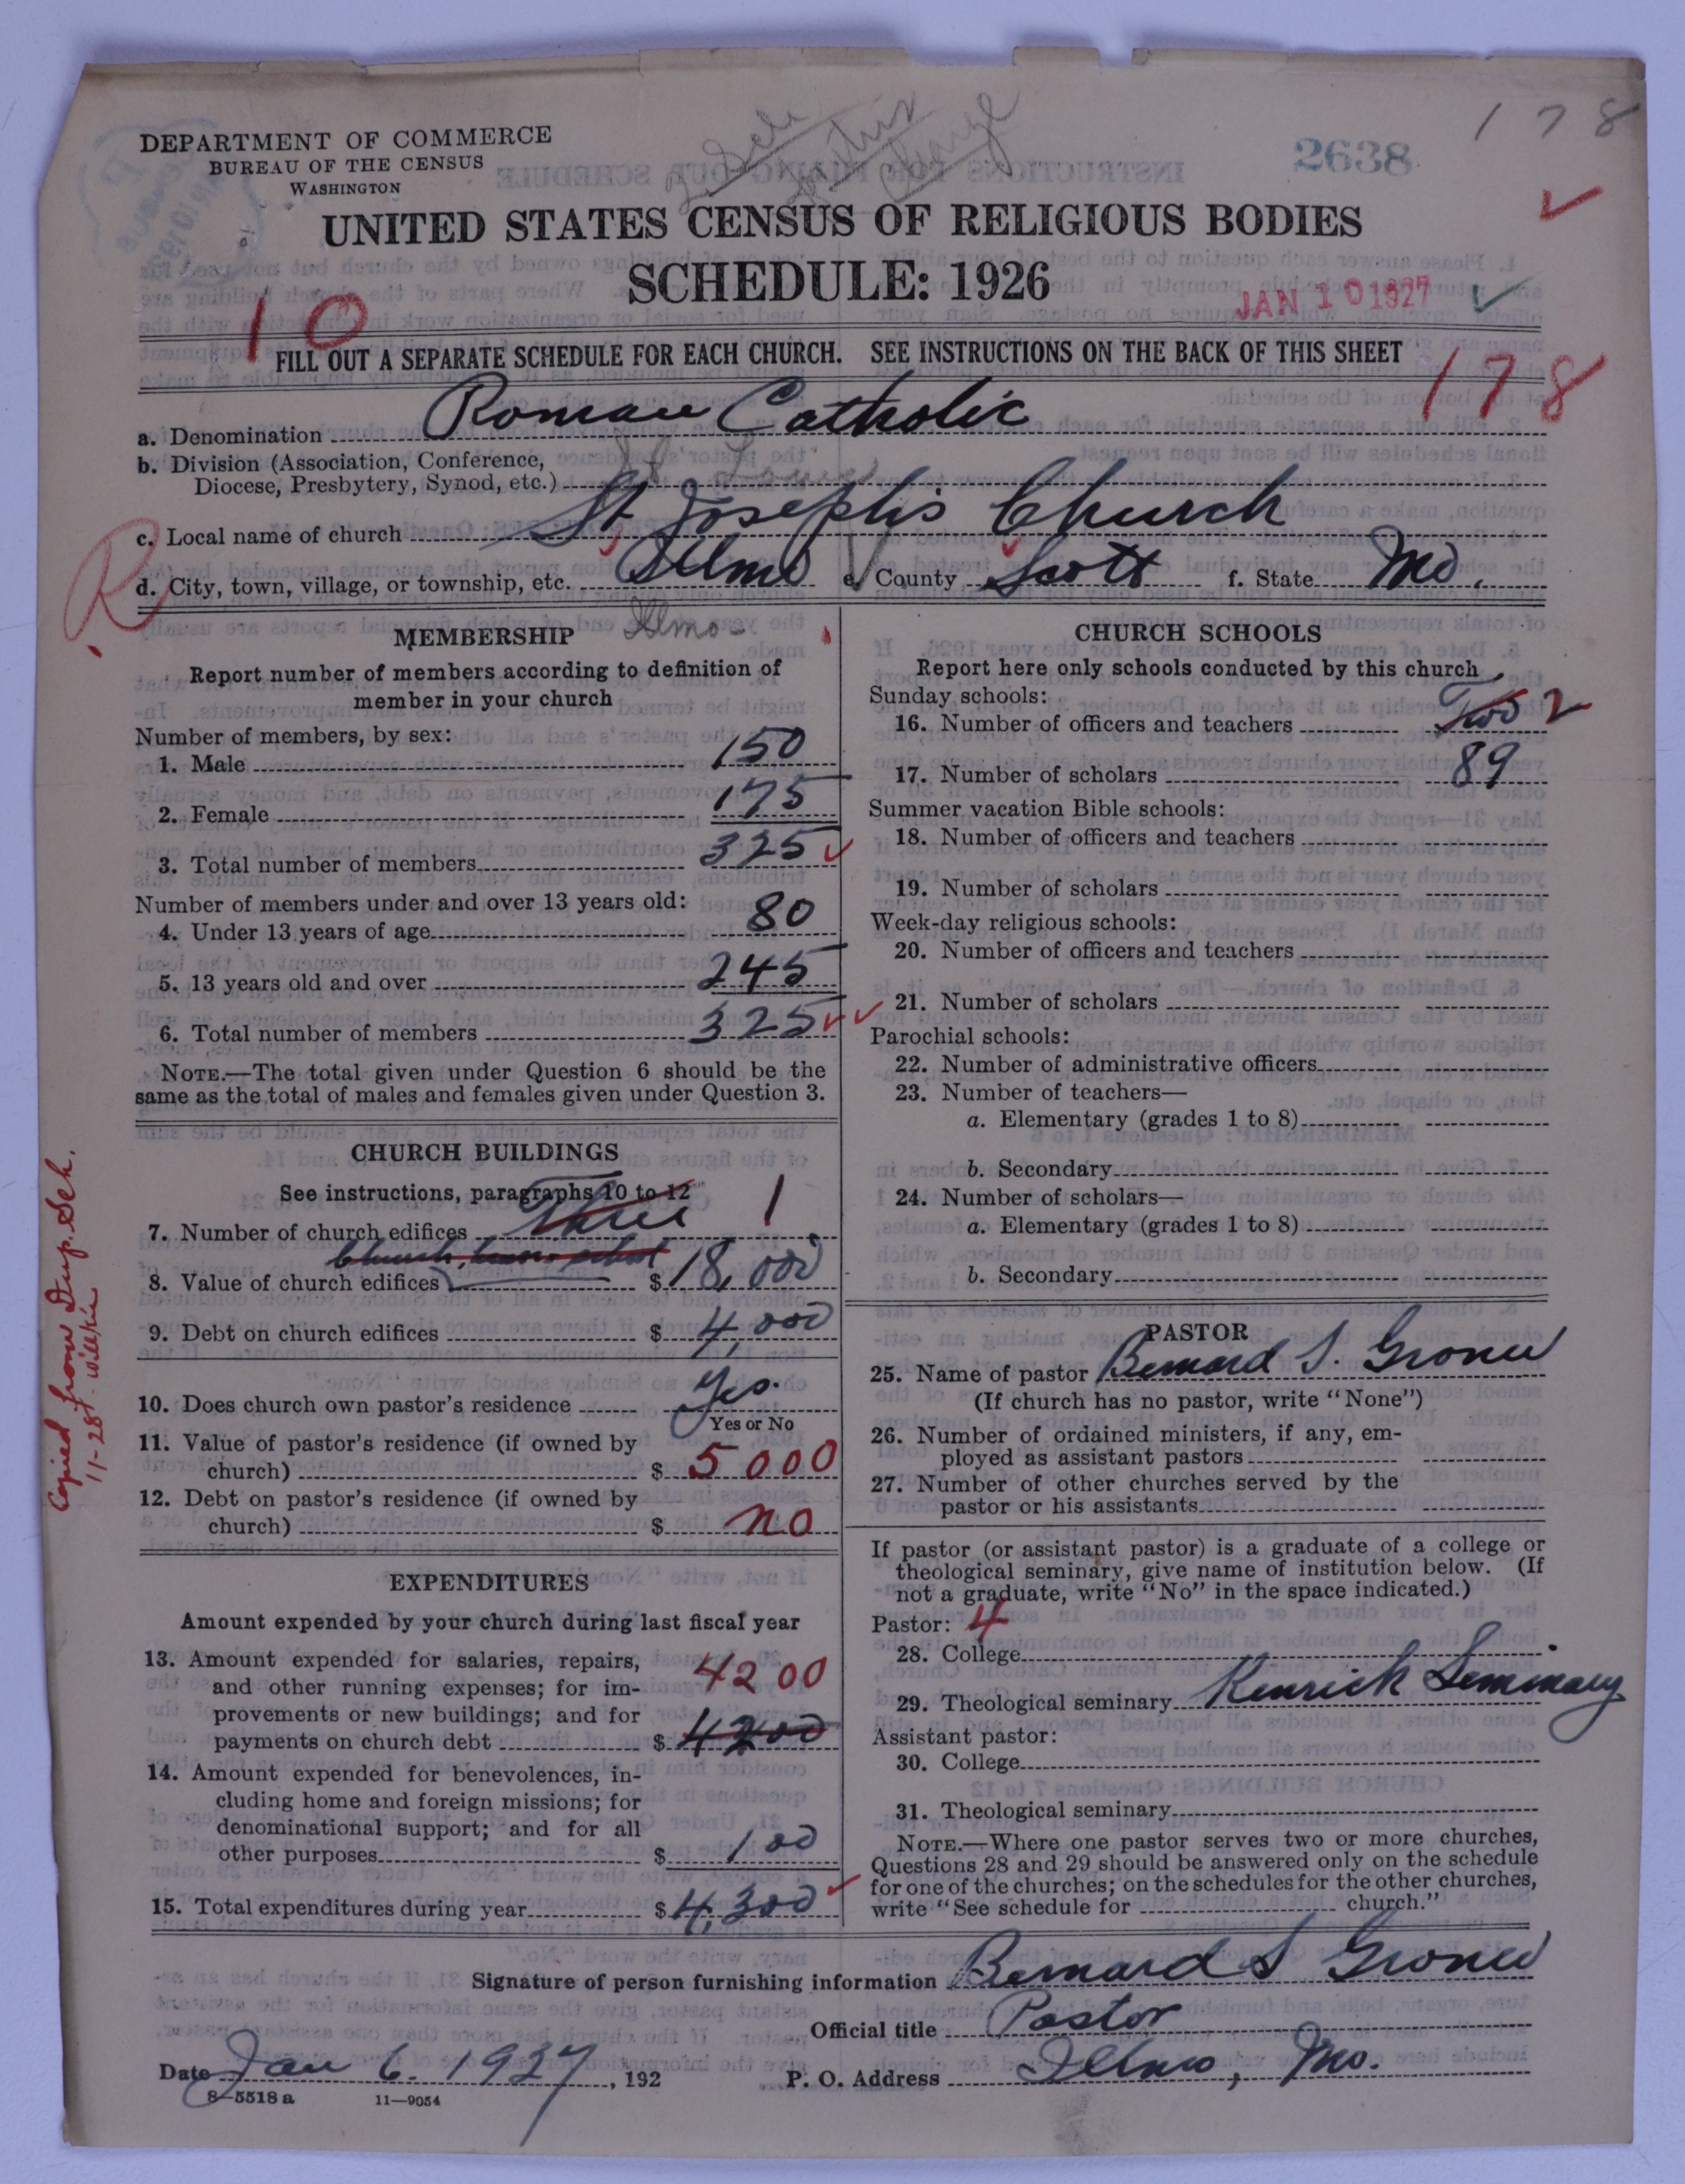 178
2638
DEPARTMENT OF COMMERCE
BUREAU OF THE CENSUS
WASHINGTON
UNITED STATES CENSUS OF RELIGIOUS BODIES
SCHEDULE: 1926
JAN 10 1927
10
FILL OUT A SEPARATE SCHEDULE FOR EACH CHURCH. SEE INSTRUCTIONS ON THE BACK OF THIS SHEET
178
a. Denomination Roman Catholic
b. Division (Association, Conference, St Louis
Diocese, Presbytery, Synod, etc.)
c. Local name of church St Joseph's Church
R
d. City, town, village, or township, etc. Illmo e. County Scott f. State Mo.
Illmo-
MEMBERSHIP
Report number of members according to definition of
member in your church
Number of members, by sex:
1. Male 150
2. Female 175
3. Total number of members 325
Number of members under and over 13 years old:
4. Under 13 years of age 80
5. 13 years old and over 245
6. Total number of members 325
NOTE.—The total given under Question 6 should be the
same as the total of males and females given under Question 3.
CHURCH BUILDINGS
See instructions, paragraphs 10 to 12
7. Number of church edifices Three 1
Church, house school
8. Value of church edifices $ 18,000
9. Debt on church edifices $ 4,000
10. Does church own pastor's residence Yes.
Yes or No
11. Value of pastor's residence (if owned by
church) $ 5000
12. Debt on pastor's residence (if owned by
church) $ no
Copied from Dup. Sch.
11-28-
EXPENDITURES
Amount expended by your church during last fiscal year
13. Amount expended for salaries, repairs, 4200
and other running expenses; for im-
provements or new buildings; and for
payments on church debt $ 4200
14. Amount expended for benevolences, in-
cluding home and foreign missions; for
denominational support; and for all
other purposes $ 100
15. Total expenditures during year $ 4,300
CHURCH SCHOOLS
Report here only schools conducted by this church
Sunday schools:
16. Number of officers and teachers Two 2
17. Number of scholars 89
Summer vacation Bible schools:
18. Number of officers and teachers
19. Number of scholars
Week-day religious schools:
20. Number of officers and teachers
21. Number of scholars
Parochial schools:
22. Number of administrative officers
23. Number of teachers—
a. Elementary (grades 1 to 8)
b. Secondary
24. Number of scholars—
a. Elementary (grades 1 to 8)
b. Secondary
PASTOR
25. Name of pastor Bernard S. Groner
(If church has no pastor, write "None")
26. Number of ordained ministers, if any, em-
ployed as assistant pastors
27. Number of other churches served by the
pastor or his assistants
If pastor (or assistant pastor) is a graduate of a college or
theological seminary, give name of institution below. (If
not a graduate, write "No" in the space indicated.)
Pastor: 4
28. College
29. Theological seminary Kenrick Seminary
Assistant pastor:
30. College
31. Theological seminary
NOTE.—Where one pastor serves two or more churches,
Questions 28 and 29 should be answered only on the schedule
for one of the churches; on the schedules for the other churches,
write "See schedule for church."
Signature of person furnishing information Bernard S Groner
Official title Pastor
Date Jan 6. 1927, 192 P. O. Address Illmo, Mo.
8—5518 a 11—9054